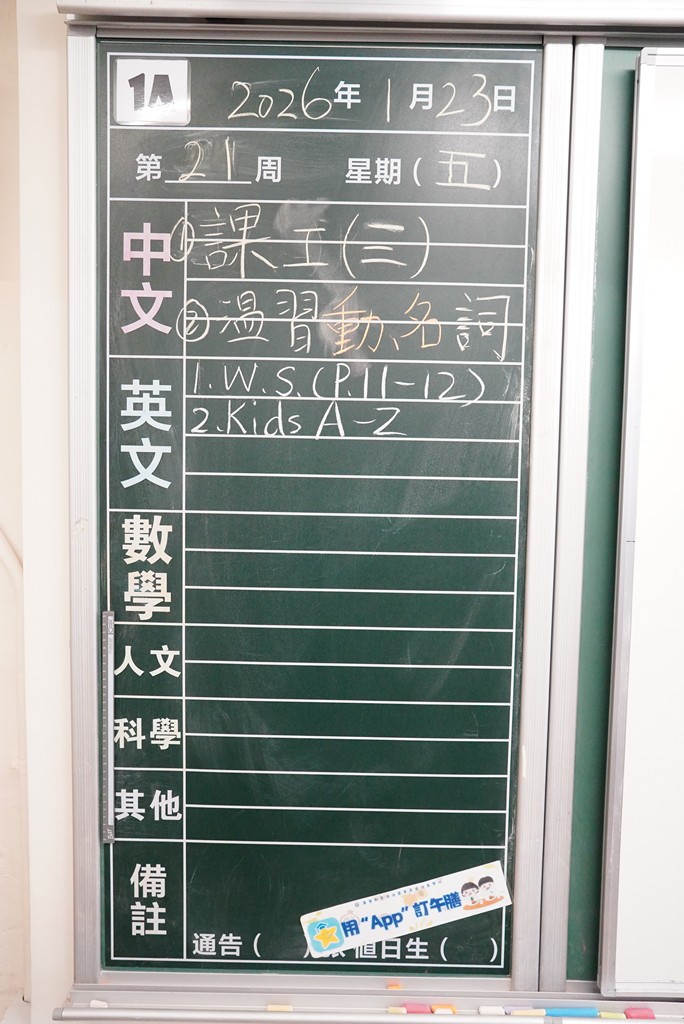 1A
2026年1月23日
第21周 星期(五)
中文
①課工(三)
②溫習動、名詞
英文
1. W.S. (P.11-12)
2. Kids A-Z
數學
人文
科學
其他
備註
通告( ) 值日生( )
用“App”訂午膳